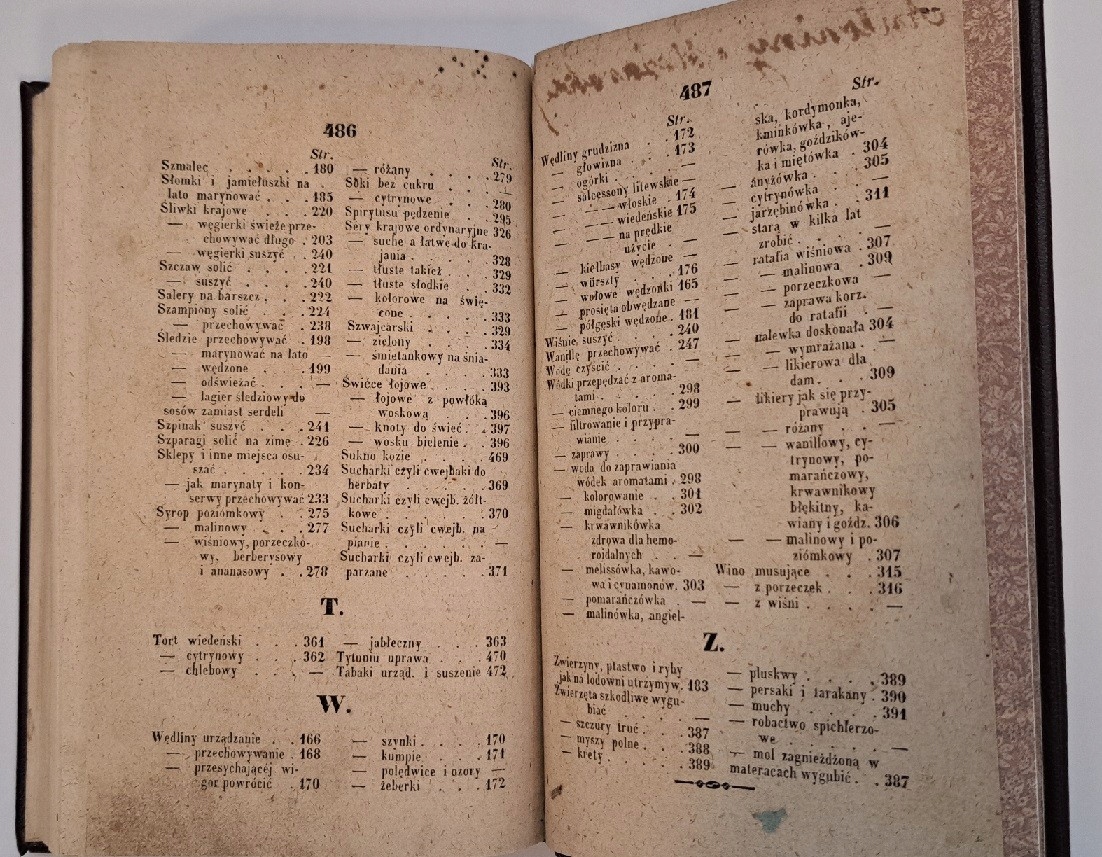 486
Str.
Szmalec . . . . . 180
Słomki i jamiełuszki na
lato marynować . . . 185
Śliwki krajowe . . . 220
— węgierki świeże prze-
chowywać długo . 203
węgierki suszyć . . 240
Szczaw solić . . . . 221
— suszyć . . . . 240
Salery na barszcz . . . 222
Szampiony solić . . . 224
— przechowywać . 238
Śledzie przechowywać . 198
marynować na lato —
— wędzone . . . . 199
— odświeżać . . . —
— lagier śledziowy do
sosów zamiast serdeli —
Szpinak suszyć . . . 241
Szparagi solić na zimę . 226
Sklepy i inne miejsca osu-
szać . . . . . . 234
— jak marynaty i kon-
serwy przechowywać 233
Syrop poziomkowy . . 275
— malinowy . . . . 277
— wiśniowy, porzeczko-
wy, berberysowy
i ananasowy . . . 278
Str.
— różany . . . . 279
Soki bez cukru . . . . —
— cytrynowe . . . . 280
Spirytusu pędzenie . . 295
Sery krajowe ordynaryjne 326
— suche a łatwe do kra-
jania . . . . . . 328
— tłuste takież . . . 329
— tłuste słodkie . . . 332
— kolorowe na świę-
cone . . . . . . 333
Szwajcarski . . . . . 329
— zielony . . . . . 334
— śmietankowy na śnia-
dania . . . . . . 333
Świéce łojowe . . . . 393
— łojowe z powłóką
woskową . . . . 396
— knoty do świec . . 397
— wosku bielenie . . 396
Sukno kozie . . . . . 469
Sucharki czyli cwejbaki do
herbaty . . . . . 369
Sucharki czyli cwejb. żółt-
kowe . . . . . . 370
Sucharki czyli cwejb. na
pianie . . . . . . —
Sucharki czyli cwejb. za-
parzane . . . . . 371
T.
Tort wiedeński . . . . 361
— cytrynowy . . . 362
— chlebowy . . . . —
— jabłeczny . . . . 363
Tytuniu uprawa . . . 470
Tabaki urząd. i suszenie 472
W.
Wędliny urządzanie . . 166
— przechowywanie . 168
— przesychającéj wi-
gor powrócić . . 170
— szynki . . . . . 170
— kumpie . . . . . 171
— polędwice i ozory —
— żeberki . . . . . 172
487
Str.
Wędliny grudzizna . . 172
— głowizna . . . . 173
— ogórki . . . . . —
— salcessony litewskie —
— — włoskie . . 174
— — wiedeńskie 175
— — na prędkie
użycie . . . . —
— kiełbasy wędzone . —
— wurszty . . . . 176
— wołowe wędzonki 165
— prosięta obwędzane —
— półgęski wędzone . 181
Wiśnie, suszyć . . . . 240
Wanilię przechowywać . 247
Wodę czyścić . . . . —
Wódki przepędzać z aroma-
tami . . . . . . 298
— ciemnego koloru . 299
— filtrowanie i przypra-
wianie . . . . . —
— zaprawy . . . . 300
— woda do zaprawiania
wódek aromatami . 298
— kolorowanie . . . 301
— migdałówka . . . 302
— krwawnikówka
zdrowa dla hemo-
roidalnych . . . —
— melissówka, kawo-
wa i cynamonów. 303
— pomarańczówka . —
— malinówka, angiel-
Str.
ska, kordymonka,
kminkówka, aje-
rówka, goździków-
ka i miętówka . 304
— ányżówka . . . . 305
— cytrynówka . . . —
— jarzębinówka . . . 311
— starą w kilka lat
zrobić . . . . . —
— ratafia wiśniowa . 307
— — malinowa . 309
— — porzeczkowa —
— — zaprawa korz.
do ratafii . . . —
— nalewka doskonała 304
— — wymrażana . . —
— — likierowa dla
dam . . . . 309
— likiery jak się przy-
prawują . . . 305
— — różany . . . —
— — waniliowy, cy-
trynowy, po-
marańczowy,
krwawnikowy
błękitny, ka-
wiany i goźdz. 306
— — malinowy i po-
ziómkowy . . 307
Wino musujące . . . 315
— z porzeczek . . . 316
— z wiśni . . . . . —
Z.
Zwierzyny, ptastwo i ryby
jak na lodowni utrzymyw. 183
Zwierzęta szkodliwe wygu-
biać . . . . . . —
— szczury truć . . . 387
— myszy polne . . . 388
— krety . . . . . 389
— pluskwy . . . . 389
— persaki i żarakany . 390
— muchy . . . . . 391
— robactwo spichlerzo-
we . . . . . . —
— mol zagnieżdżoną w
materacach wygubić . 387